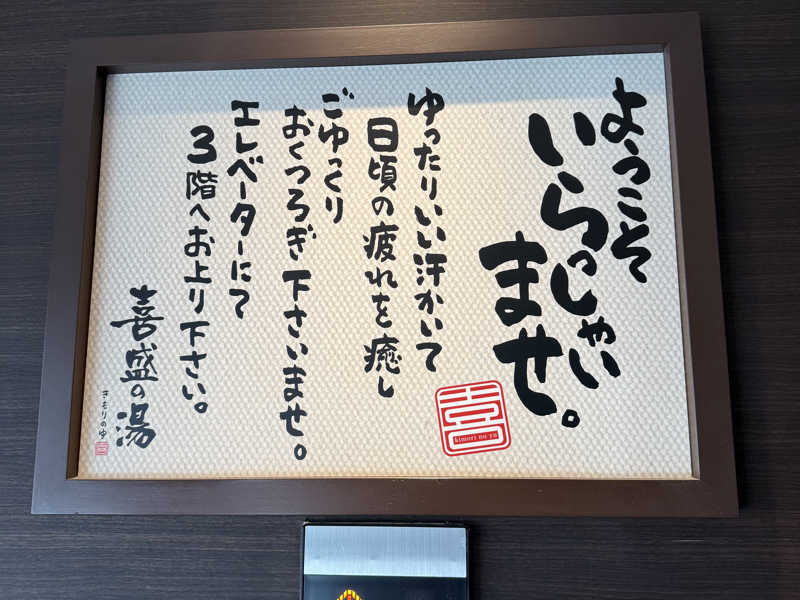 ようこそ
いらっしゃい
ませ。
ゆったりいい汗かいて
日頃の疲れを癒し
ごゆっくり
おくつろぎ下さいませ。
エレベーターにて
3階へお上り下さい。
喜盛の湯
きもりのゆ
喜
kimori no yu